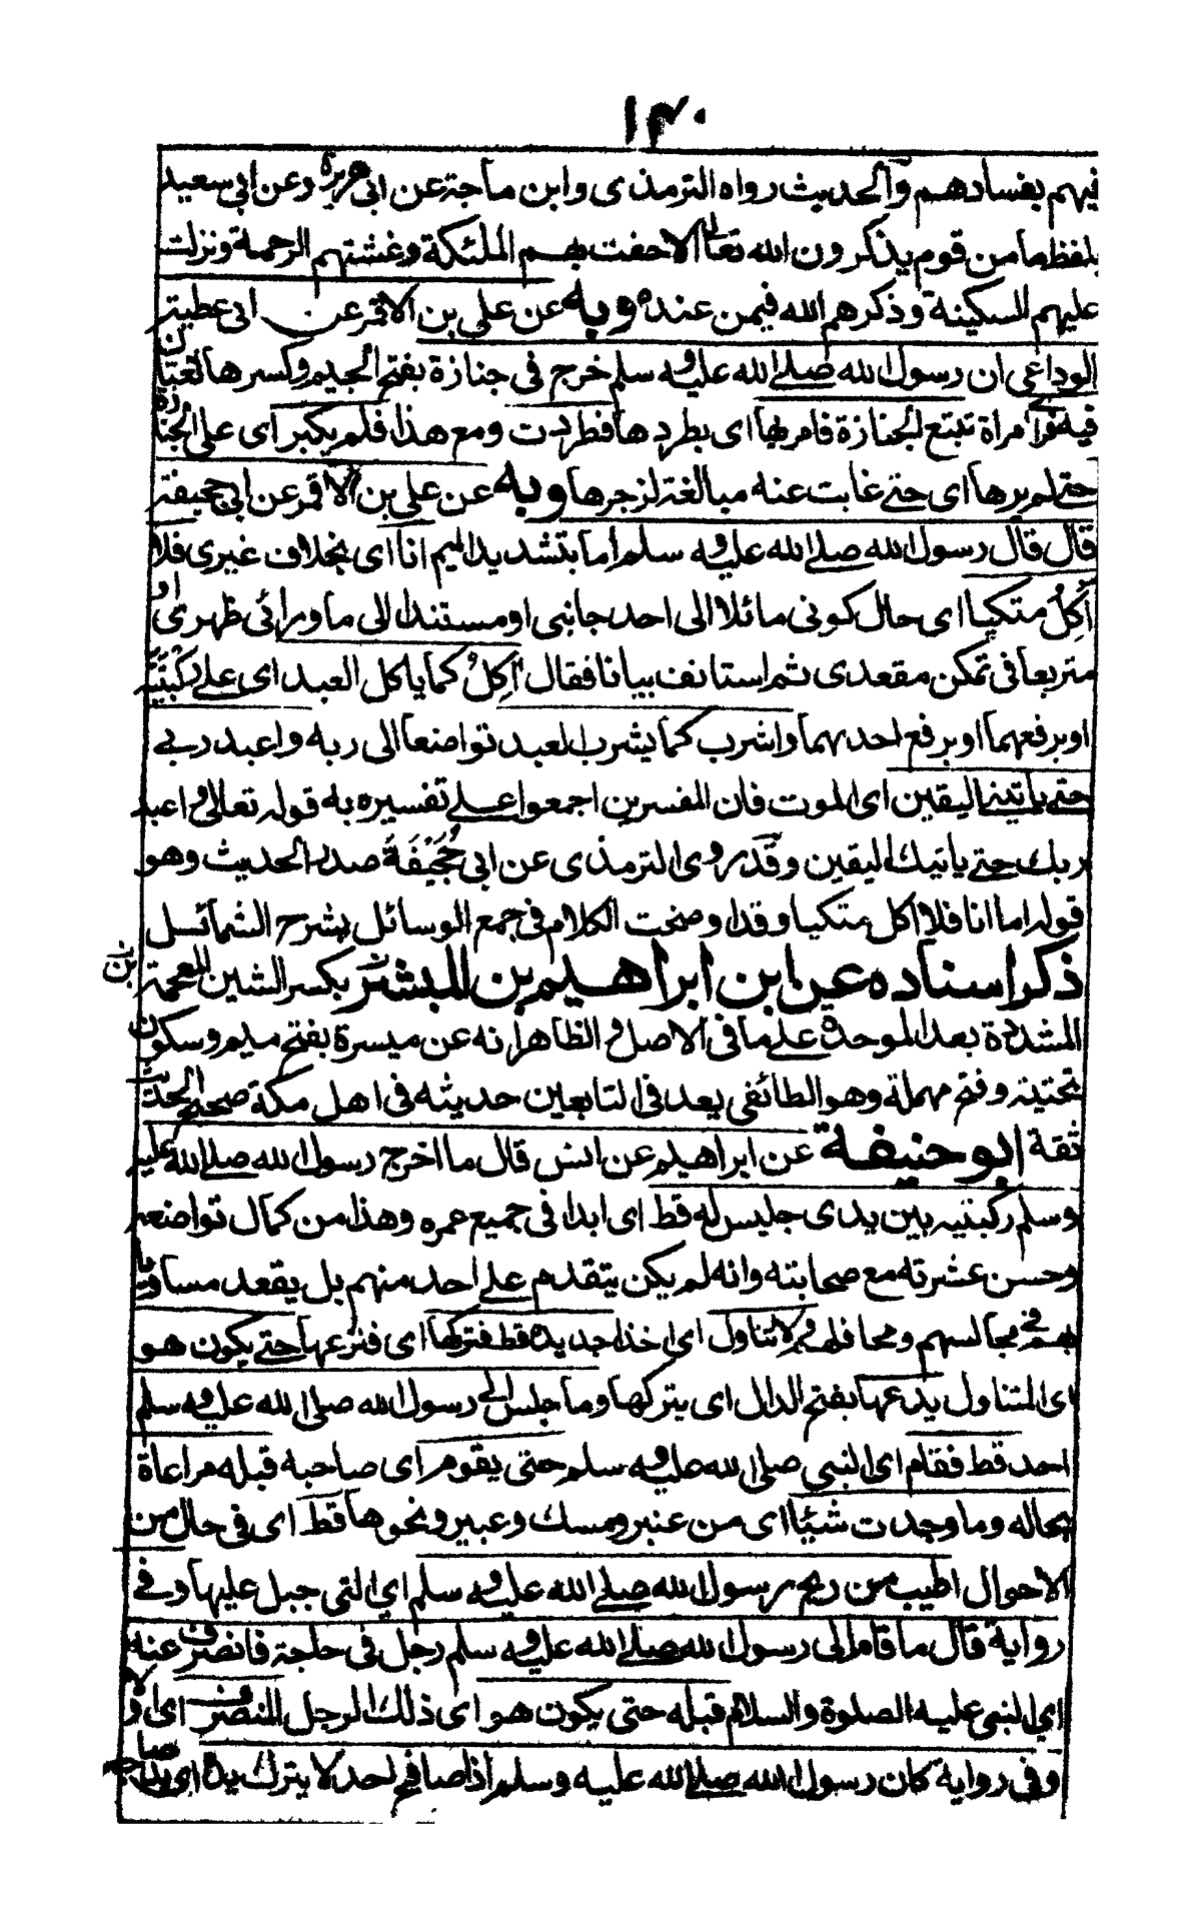 ١٤٠
فيهم بفسادهم والحديث رواه الترمذى وابن ماجة عن ابى هريرة وعن ابى سعيد
بلفظ ما من قوم يذكرون الله تعالى الا حفت بهم الملئكة وغشتهم الرحمة ونزلت
عليهم السكينة وذكرهم الله فيمن عنده وبه عن على بن الاقمر عن ابى عطية
الوداعى ان رسول الله صلى الله عليه وسلم خرج فى جنازة بفتح الجيم وكسرها لغتان
فيه فراى امراة تتبع الجنازة فامر بها اى بطردها فطردت ومع هذا فلم يكبر اى على الجنازة
حتى لم يرها اى حتى غابت عنه مبالغة لزجرها وبه عن على بن الاقمر عن ابى جحيفة
قال قال رسول الله صلى الله عليه وسلم اما بتشديد الميم انا اى بخلاف غيرى فلا
آكل متكيا اى حال كونى مائلا الى احد جانبى او مستندا الى ما ورائى ظهرى او
متربعا فى تمكن مقعدى ثم استانف بيانا فقال آكل كما ياكل العبد اى على ركبتيه
او برفعهما او برفع احدهما واشرب كما يشرب العبد تواضعا الى ربه واعبد ربى
حتى ياتينى اليقين اى الموت فان المفسرين اجمعوا على تفسيره به قوله تعالى واعبد
ربك حتى ياتيك اليقين وقد روى الترمذى عن ابى جُحَيْفَةَ صدر الحديث وهو
قوله اما انا فلا آكل متكيا وقد اوضحت الكلام فى جمع الوسائل بشرح الشمائل
ذكر اسناده عن ابن ابراهيم بن المبشر بكسر الشين المعجمة
المشددة بعد الموحدة على ما فى الاصل والظاهر انه عن ميسرة بفتح ميم وسكون
تحتية وفتح مهملة وهو الطائفى يعد فى التابعين حديثه فى اهل مكة صحيح الحديث
ثقة ابو حنيفة عن ابراهيم عن انس قال ما اخرج رسول الله صلى الله عليه
وسلم ركبتيه بين يدى جليس له قط اى ابدا فى جميع عمره وهذا من كمال تواضعه
وحسن عشرته مع صحابته وانه لم يكن يتقدم على احد منهم بل يقعد مساويا
بهم فى مجالسهم ومحافلهم ولا تناول اى اخذ احد يده قط فتركها اى فنزعها حتى يكون هو
اى المتناول يدعها بفتح الدال اى يتركها وما جلس الى رسول الله صلى الله عليه وسلم
احد قط فقام اى النبى صلى الله عليه وسلم حتى يقوم اى صاحبه قبله مراعاة
بحاله وما وجدت شيئا اى من عنبر ومسك وعبير ونحوها قط اى فى حال من
الاحوال اطيب من ريح رسول الله صلى الله عليه وسلم اى التى جبل عليها وفى
رواية قال ما قام الى رسول الله صلى الله عليه وسلم رجل فى حاجة فانصرف عنه
اى النبى عليه الصلوة والسلام قبله حتى يكون هو اى ذلك الرجل المنصرف اى اولا
وفى رواية كان رسول الله صلى الله عليه وسلم اذا صافح احد لا يترك يده اى يد صاحبه